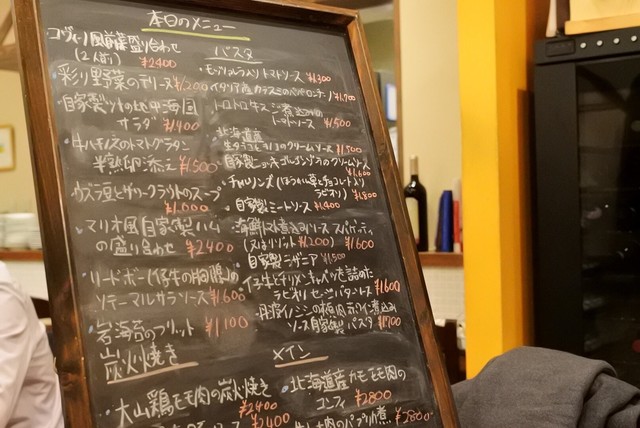 本日のメニュー
風前菜盛り合わせ
(2人前) ¥2400
・彩り野菜のテリーヌ ¥1200
自家製ツナの地中海風
サラダ ¥1400
・牛ハチノスのトマトグラタン
半熟卵添え ¥1500
ウズラ豆とザワークラウトのスープ
¥1000
・マリオ風自家製ハム
の盛り合わせ ¥2400
・リードボー(仔牛の胸腺)の
ソテーマルサラソース ¥1600
・岩海苔のフリット ¥1100
炭火焼き
・大山鶏モモ肉の炭火焼き
¥2400
¥2400
パスタ
・モッツァレラ入りトマトソース ¥1300
イタリア産カラスミのペペロンチーノ ¥1700
トロトロ牛スジ煮込みの
トマトソース ¥1500
北海道産
生タラコとイカのクリームソース ¥1500
自家製ニョッキ ゴルゴンゾーラのクリームソース
¥1600
・チャルソンズ(ほうれん草とチョコレート入り
ラビオリ) ¥1800
自家製ミートソース ¥1400
・海鮮トマト煮込みソース スパゲッティ
(又はリゾット ¥1200) ¥1600
自家製ラザニア ¥1500
・イベリコ牛とチリメンキャベツを詰めた
ラビオリ セージバターソース ¥1600
・丹波イノシシの梅肉赤ワイン煮込み
ソース自家製パスタ ¥1700
メイン
・北海道産カモモモ肉の
コンフィ ¥2800
肉のパプリカ煮 ¥2800